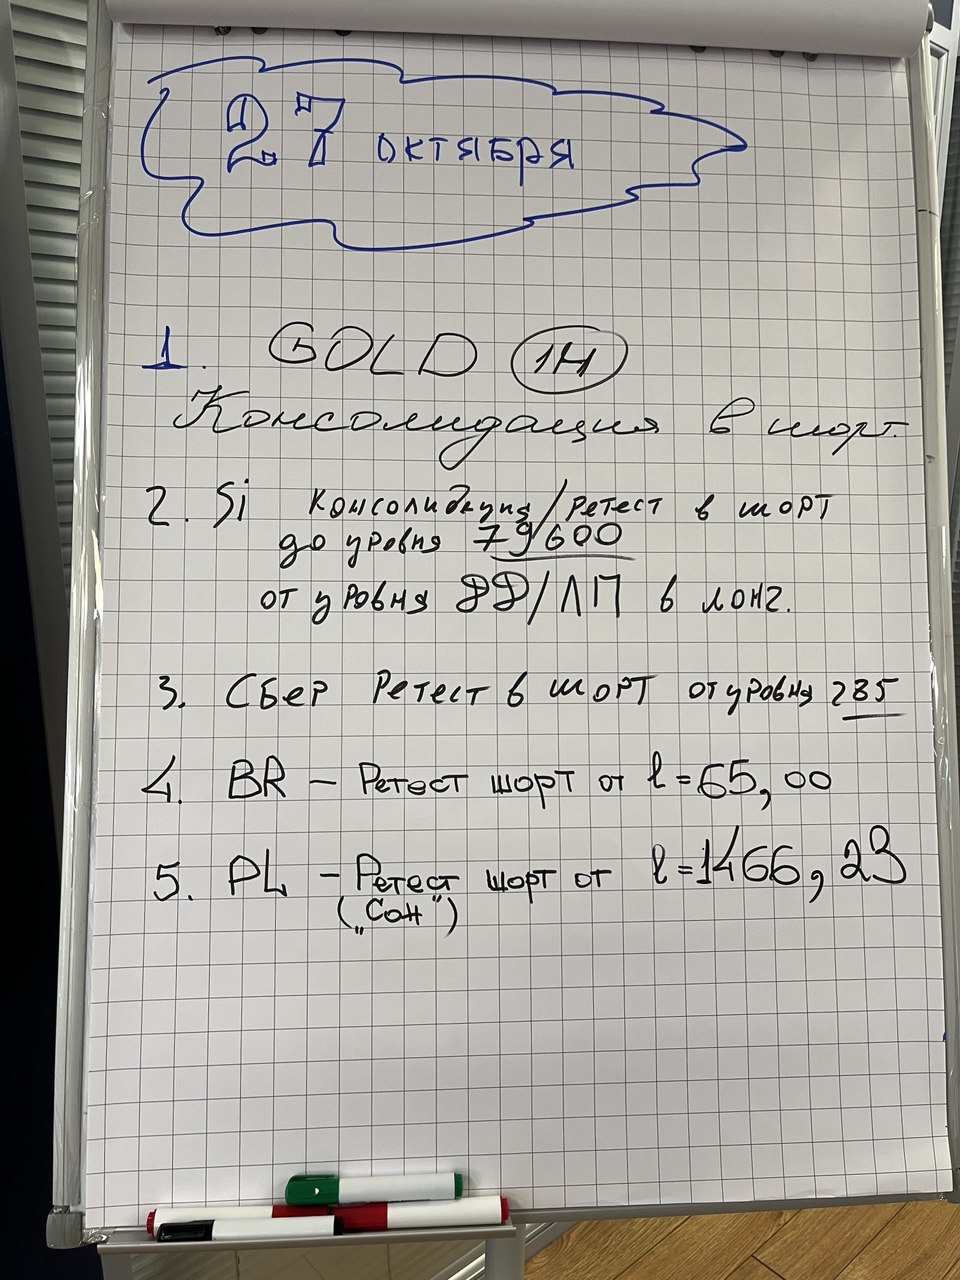 27 октября
1. GOLD 1H
Консолидация в шорт.
2. Si Консолидация/Ретест в шорт
до уровня 79600
от уровня ДД/ЛП в лонг.
3. Сбер Ретест в шорт от уровня 285
4. BR – Ретест шорт от l=65,00
5. PL – Ретест шорт от l=1466,23
(„Сон")